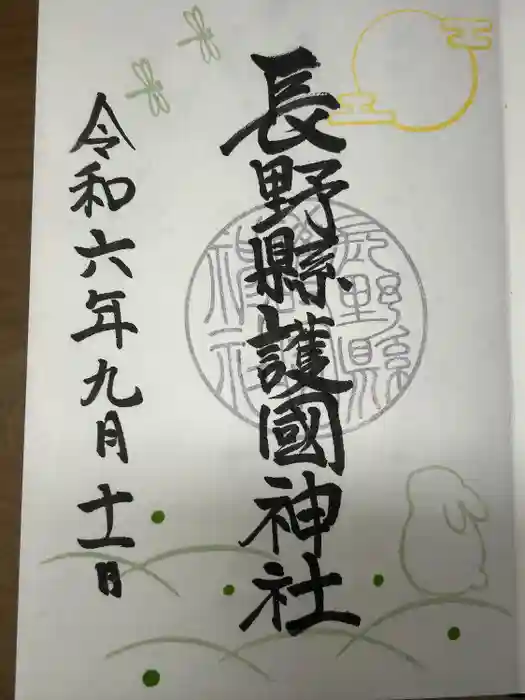 長野縣護國神社
令和六年九月十一日
長野縣
神社